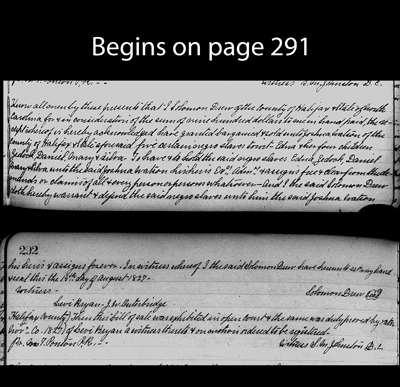 Begins on page 291
Witness S. M. Johnston D. C.
Know all men by these presents that I Solomon Drew of the County of Halifax & State of North
Carolina for & in consideration of the sum of nine hundred dollars to me in hand paid, the re-
ceipt whereof is hereby acknowledged have granted bargained & sold unto Joshua Eation of the
county of Halifax & State aforesaid five certain negro slaves to wit. Edna & her four children
Zedock, Daniel, Mary & Silva. To have & to hold the said negro slaves Edna, Zedock, Daniel
Mary & Silva unto the said Joshua Eation his heirs Exrs. Admrs. & assigns free & clear from the
claims of all & every person or persons whatsoever - And I the said Solomon Drew
doth hereby warrant & defend the said negro slaves unto him the said Joshua Eation
292
his heirs & assigns forever. In witness whereof I the said Solomon Drew have hereunto set my hand
& seal this the 18th day of August 1827-
Witness- Solomon Drew (Seal)
Levi Bryan - J. W. Outerbridge
Halifax County} Then this bill of sale was exhibited in open court & the same was duly proved by
Novr. Ct. 1827} of Levi Bryan a witness thereto & on motion ordered to be registered
Ponton P. R. - Witness S. M. Johnston D. C.